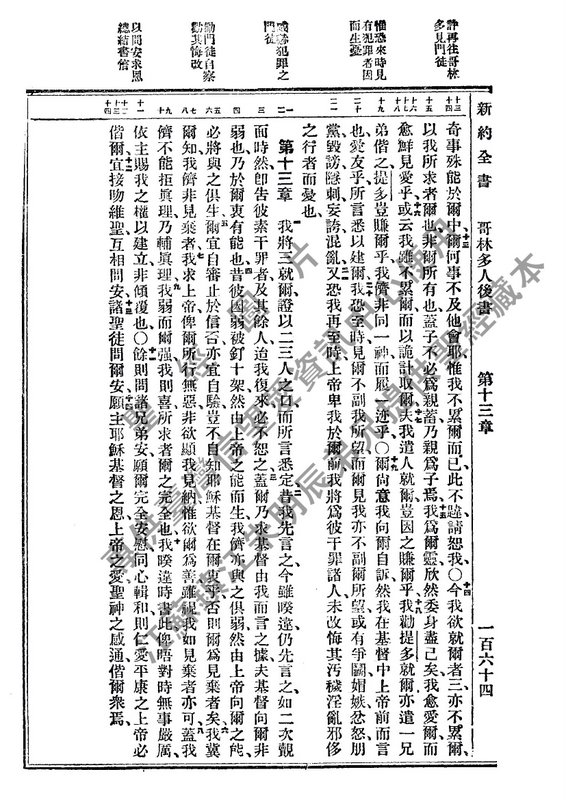 新約全書 哥林多人後書 第十三章 一百六十四
許再往哥林多見門徒
惟恐來時見有犯罪者因而生憂
威嚇犯罪之門徒
勸門徒自察勸其悔改
以問安求恩總結書信
奇事殊能於爾中爾何事不及他會耶惟我不累爾而已此不韙請恕我〇今我欲就爾者三亦不累爾
以我所求者爾也非爾所有也蓋子不必為親蓄乃親為子焉我為爾靈欣然委身盡己矣我愈愛爾而
愈鮮見愛乎或云我雖不累爾而以詭計取爾夫我遣人就爾豈因之賺爾乎我勸提多就爾亦遣一兄
弟偕之提多豈賺爾乎我儕非同一神而履一迹乎〇爾尚意我向爾自訴然我在基督中上帝前而言
也愛友乎所言悉以建爾我恐至時見爾不副我所望而爾見我亦不副爾所望或有爭鬬媢嫉忿怒朋
黨毀謗隱刺妄誇混亂又恐我再至時上帝卑我於爾前我將為彼干罪諸人未改悔其汚穢淫亂邪侈
之行者而憂也
第十三章 我將三就爾證以二三人之口而所言悉定昔我先言之今雖暌違仍先言之如二次覿
面時然即告彼素干罪者及其餘人迨我復來必不恕之蓋爾乃求基督由我而言之據夫基督向爾非
弱也乃於爾衷有能也昔彼因弱被釘十架然由上帝之能而生我儕亦與之俱弱然由上帝向爾之能
必將與之俱生爾宜自審止於信否亦宜自驗豈不自知耶穌基督在爾衷乎否則爾為見棄者矣我冀
爾知我儕非見棄者我求上帝俾爾所行無惡非欲顯我見納惟欲爾為善雖視我如見棄者亦可蓋我
儕不能拒眞理乃輔眞理我弱而爾强我則喜所求者爾之完全也我暌違時書此俾晤對時無事嚴厲
依主賜我之權以建立非傾覆也〇餘則問諸兄弟安願爾完全安慰同心輯和則仁愛平康之上帝必
偕爾宜接吻維聖互相問安諸聖徒問爾安願主耶穌基督之恩上帝之愛聖神之感通偕爾衆焉